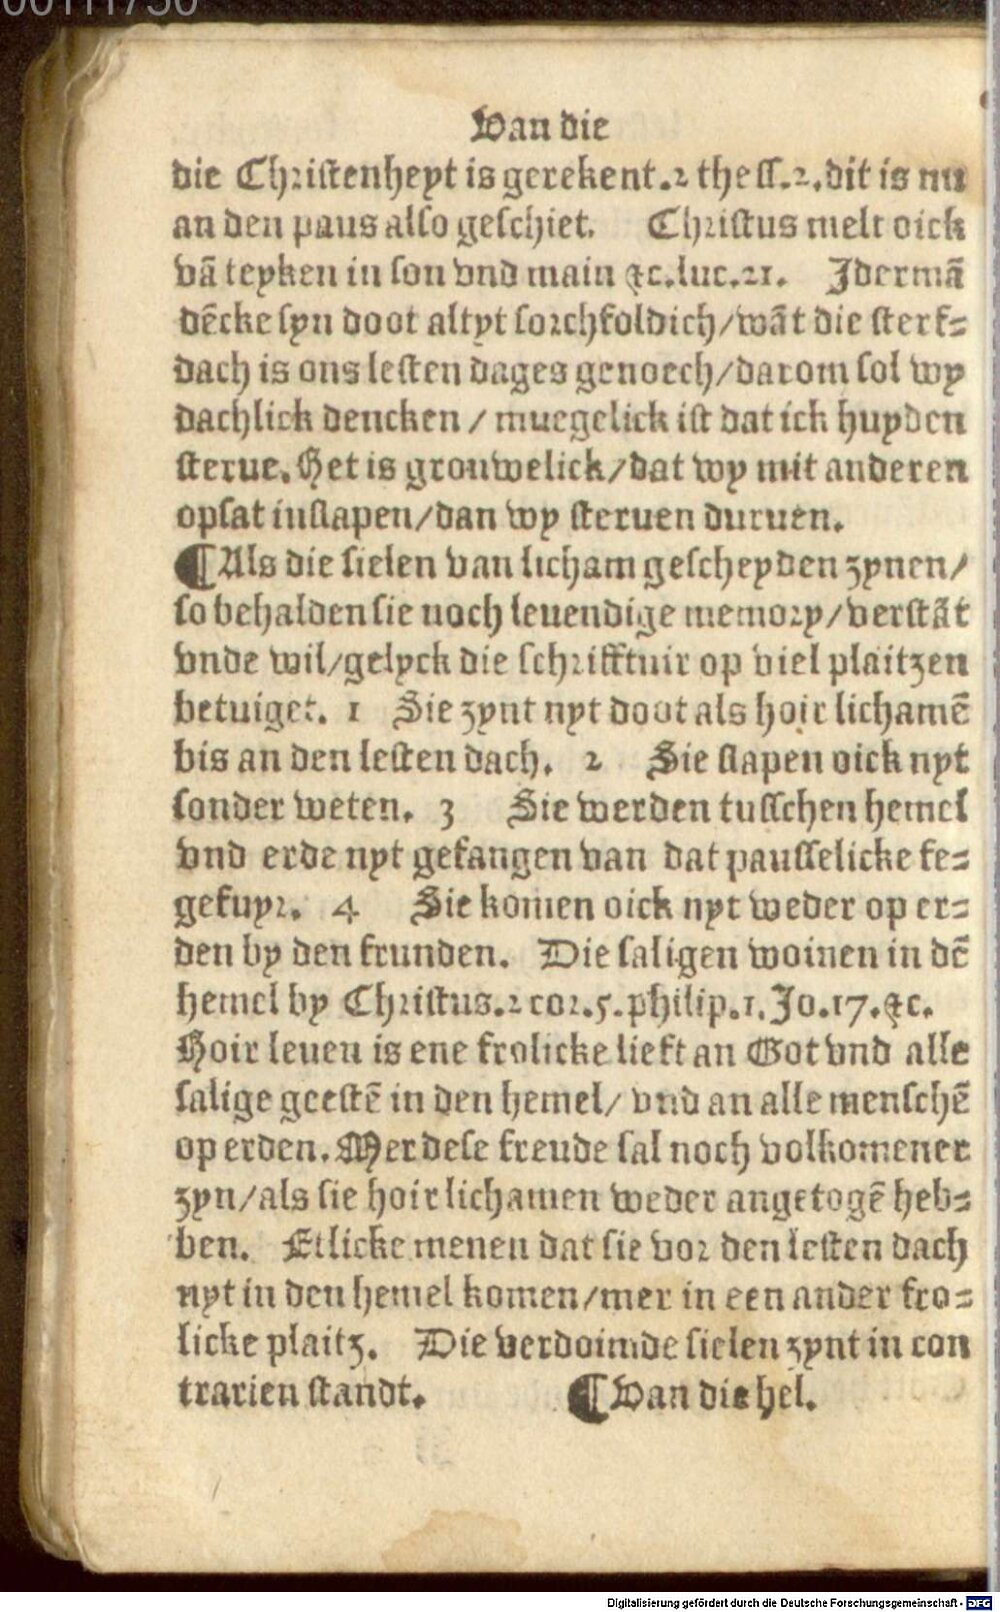 00111750
Van die
die Christenheyt is gerekent. 2 thess. 2. dit is nu
an den paus also geschiet. Christus melt oick
vā teyken in son vnd main ⁊c. luc. 21. Jdermā
dēcke syn doot altyt sorchfoldich/wāt die sterf⸗
dach is ons lesten dages genoech/darom sol wy
dachlick dencken / muegelick ist dat ick huyden
sterue. Het is grouwelick/dat wy mit anderen
opsat inslapen/dan wy steruen duruen.
¶ Als die sielen van licham gescheyden zynen/
so behalden sie noch leuendige memory/verstāt
vnde wil/gelyck die schrifftuir op viel plaitzen
betuiget. 1 Sie zynt nyt doot als hoir lichamē
bis an den lesten dach. 2 Sie slapen oick nyt
sonder weten. 3 Sie werden tusschen hemel
vnd erde nyt gefangen van dat pausselicke fe⸗
gefuyr. 4 Sie komen oick nyt weder op er⸗
den by den frunden. Die saligen woinen in dē
hemel by Christus. 2 cor. 5. philip. 1. Jo. 17. ⁊c.
Hoir leuen is ene frolicke lieft an Got vnd alle
salige geestē in den hemel/ vnd an alle menschē
op erden. Mer dese freude sal noch volkomener
zyn/als sie hoir lichamen weder angetogē heb⸗
ben. Etlicke menen dat sie vor den lesten dach
nyt in den hemel komen/mer in een ander fro⸗
licke plaitz. Die verdoimde sielen zynt in con
trarien standt. ¶ Van die hel.
Digitalisierung gefördert durch die Deutsche Forschungsgemeinschaft - DFG